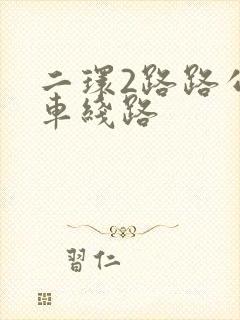 二環2路路公
車綫路
習仁